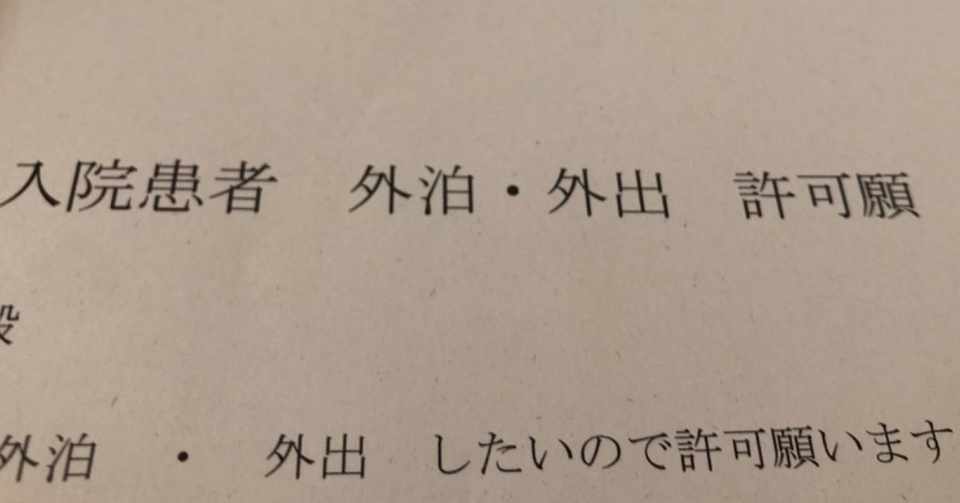 入院患者 外泊・外出 許可願
殿
外泊 ・ 外出 したいので許可願います